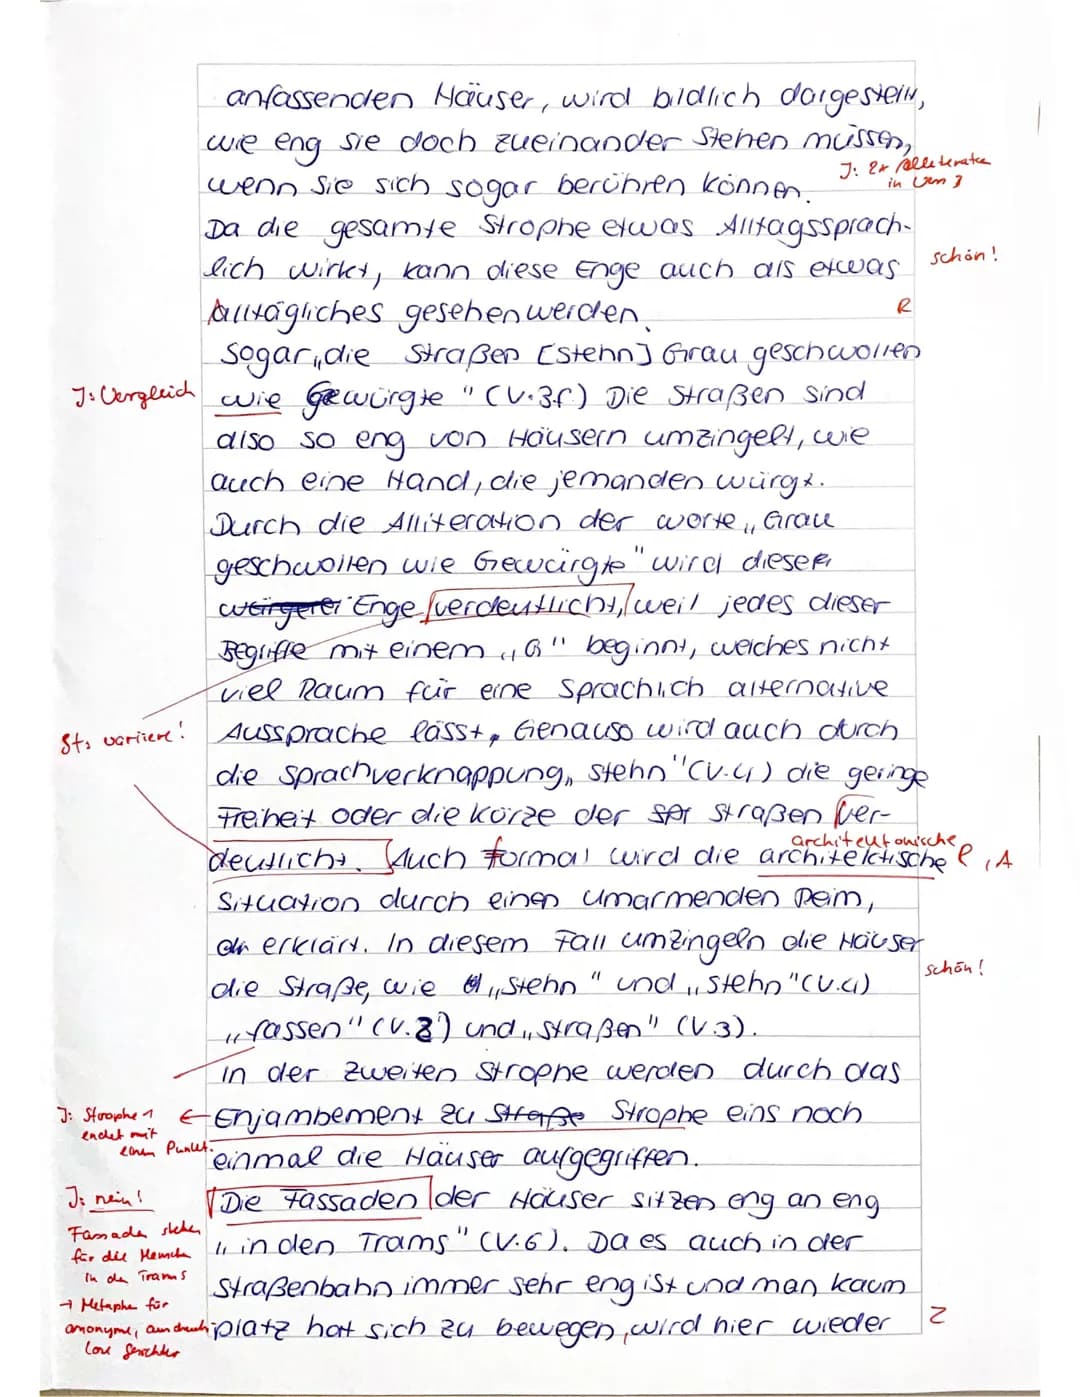 anfassenden Häuser, wird bildlich dargestellt,
wie eng sie doch zueinander stehen müssen,
J: 2x Alliteration
in Vers 3
wenn sie sich sogar berühren können.
Da die gesamte Strophe etwas Alltagssprach-
lich wirkt, kann diese Enge auch als etwas
schön!
Alltägliches gesehen werden.
R
Sogar „die Straßen [stehn] Grau geschwollen
J: Vergleich
wie Gewürgte" (V.3f.) Die Straßen sind
also so eng von Häusern umzingelt, wie
auch eine Hand, die jemanden würgt.
Durch die Alliteration der Worte „Grau
geschwollen wie Gewürgte" wird diese
Enge verdeutlicht, weil jedes dieser
Begriffe mit einem „G" beginnt, welches nicht
viel Raum für eine sprachlich alternative
St: variiere!
Aussprache lässt, Genauso wird auch durch
die Sprachverknappung „stehn" (V.4) die geringe
Freiheit oder die Kürze der Straßen ver-
architektonische
deutlicht. Auch formal wird die architektische
R, A
Situation durch einen umarmenden Reim,
erklärt. In diesem Fall umzingeln die Häuser
schön!
die Straße, wie „stehn" und „stehn" (V.4)
„fassen" (V.2) und „Straßen" (V.3).
In der zweiten Strophe werden durch das
J: Strophe 1
endet mit
einem Punkt.
← Enjambement zu Strophe eins noch
einmal die Häuser aufgegriffen.
J: nein!
Die Fassaden der Häuser sitzen eng an eng
Fassaden stehen
für die Menschen
in den Trams
→ Metapher für
anonyme, ausdrucks-
lose Gesichter
„in den Trams" (V.6). Da es auch in der
Straßenbahn immer sehr eng ist und man kaum
Platz hat sich zu bewegen, wird hier wieder
Z